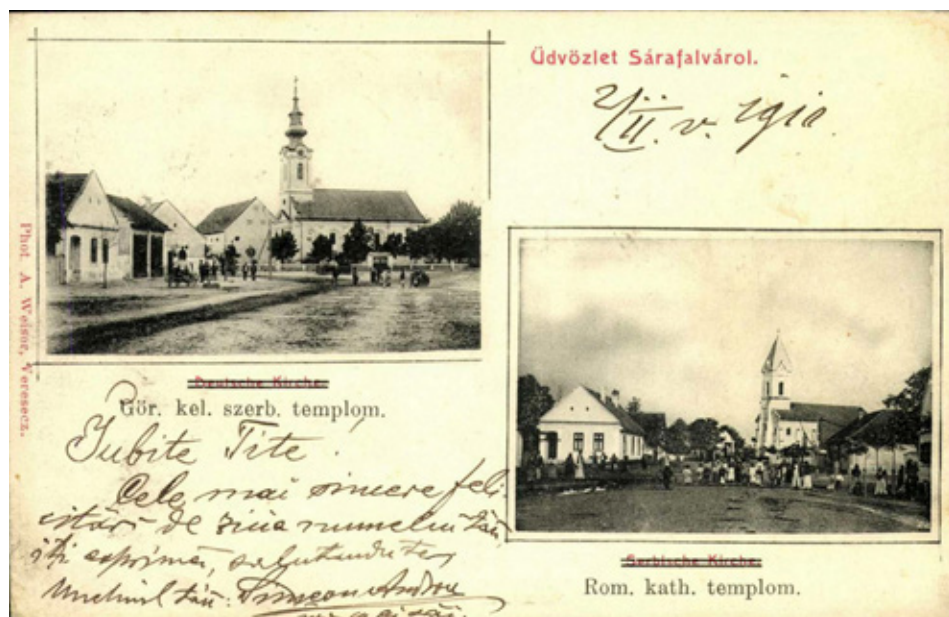 Üdvözlet Sárafalváról.
2/II. v. 1910.
Phot. A. Weisor, Veresecz.
Deutsche Kirche.
Gör. kel. szerb. templom.
Iubite Tite!
Cele mai sincere feli-
citări de ziua numelui tău
îți exprimă, salutându-te,
Unchiul tău: Simeon Andron
Serbische Kirche.
Rom. kath. templom.